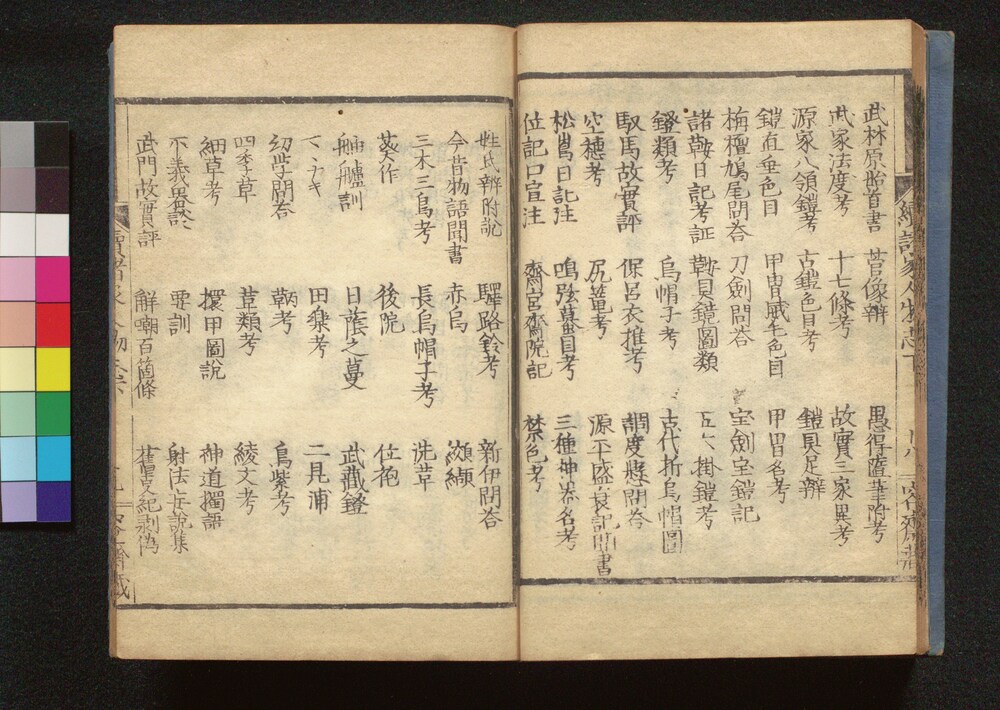 武林原始首書　菅像辨　愚得隨筆附考
武家法度考　十七條考　故實三家異考
源家八領鎧考　古鎧色目考　鎧具足辨
鎧直垂色目　甲冑威毛色目　甲冑名考
栴檀鳩尾問答　刀劍問答　宝劍宝鎧記
諸鞍日記考証　鞍貝鏡圖類　掛鎧考
鐙類考　烏帽子考　古代折烏帽圖
馭馬故實評　保呂衣推考　調度懸問答
空穗考　尻篭考　源平盛衰記聞書
松嶌日記註　鳴弦蟇目考　三種神器名考
位記口宣注　齋宮齋院記　禁色考
姓氏辨附說　驛路鈴考　新伊問答
今昔物語聞書　赤烏　纐纈
三木三鳥考　長烏帽子考　洗革
葵作　後院　位袍
舳艫訓　日蔭之蔓　武藏鐙
田　考　二見浦
幼学問答　靱考　鳥柴考
四季草　莒類考　綾文考
細草考　擐甲圖說　神道獨語
不義　要訓　射法　說集
武門故實評　解嘲百箇條　舊史紀剥偽
續諸家人物志下